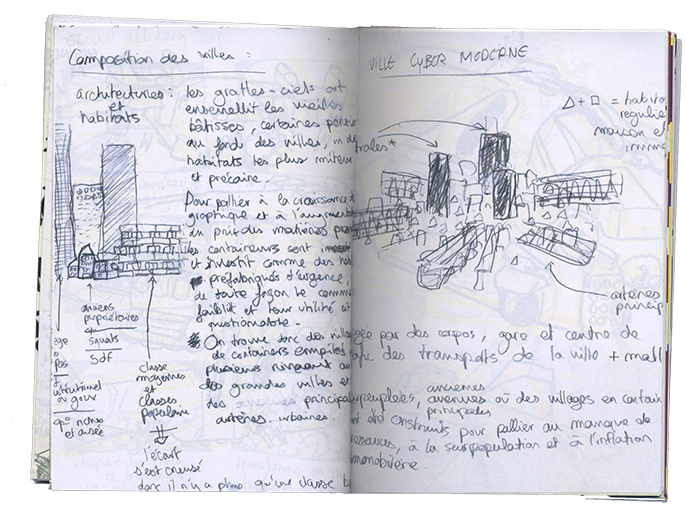 Composition des villes :
architectures :
et
habitats
les grattes-ciels ont
enseveli les vieilles
bâtisses, certaines
au fonds des villes,
habitats les plus miteux
et précaire.
Pour pallier à la croissance
graphique et à l'augment
du prix des matières
les containeurs sont
et investit comme des hab
préfabriqués d'urgence,
de toute façon le comm
faiblit et leur utilité est
On trouve donc des villag
de containers empilés
plusieurs niveaux au
des grandes villes et
des principal
artères urbaines.
anciens
propriétaires
squats
Sdf
classe
moyennes
et
classes
populaire
l'écart
s'est creusé
donc il n'y a plus qu'une classe
et aisée
VILLE CYBER MODERNE
△ + □ = habita
regulie
maison et
imme
trales*
artères
princip
gée par des corpos, gare et centre de
des transports de la ville + mall
surpeuplées, avenues où des villages en contain
anciennes
principales
t été construits pour pallier au manque de
ressources, à la surpopulation et à l'inflation
immobilière